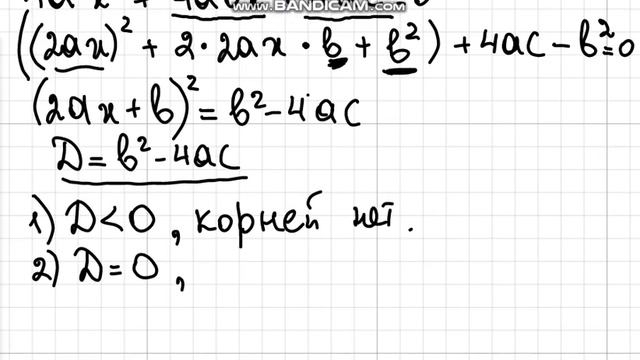 WWW.BANDICAM.COM
((2ax)² + 2·2ax·b + b²) + 4ac - b² = 0
(2ax + b)² = b² - 4ac
D = b² - 4ac
1) D < 0, корней нет.
2) D = 0,